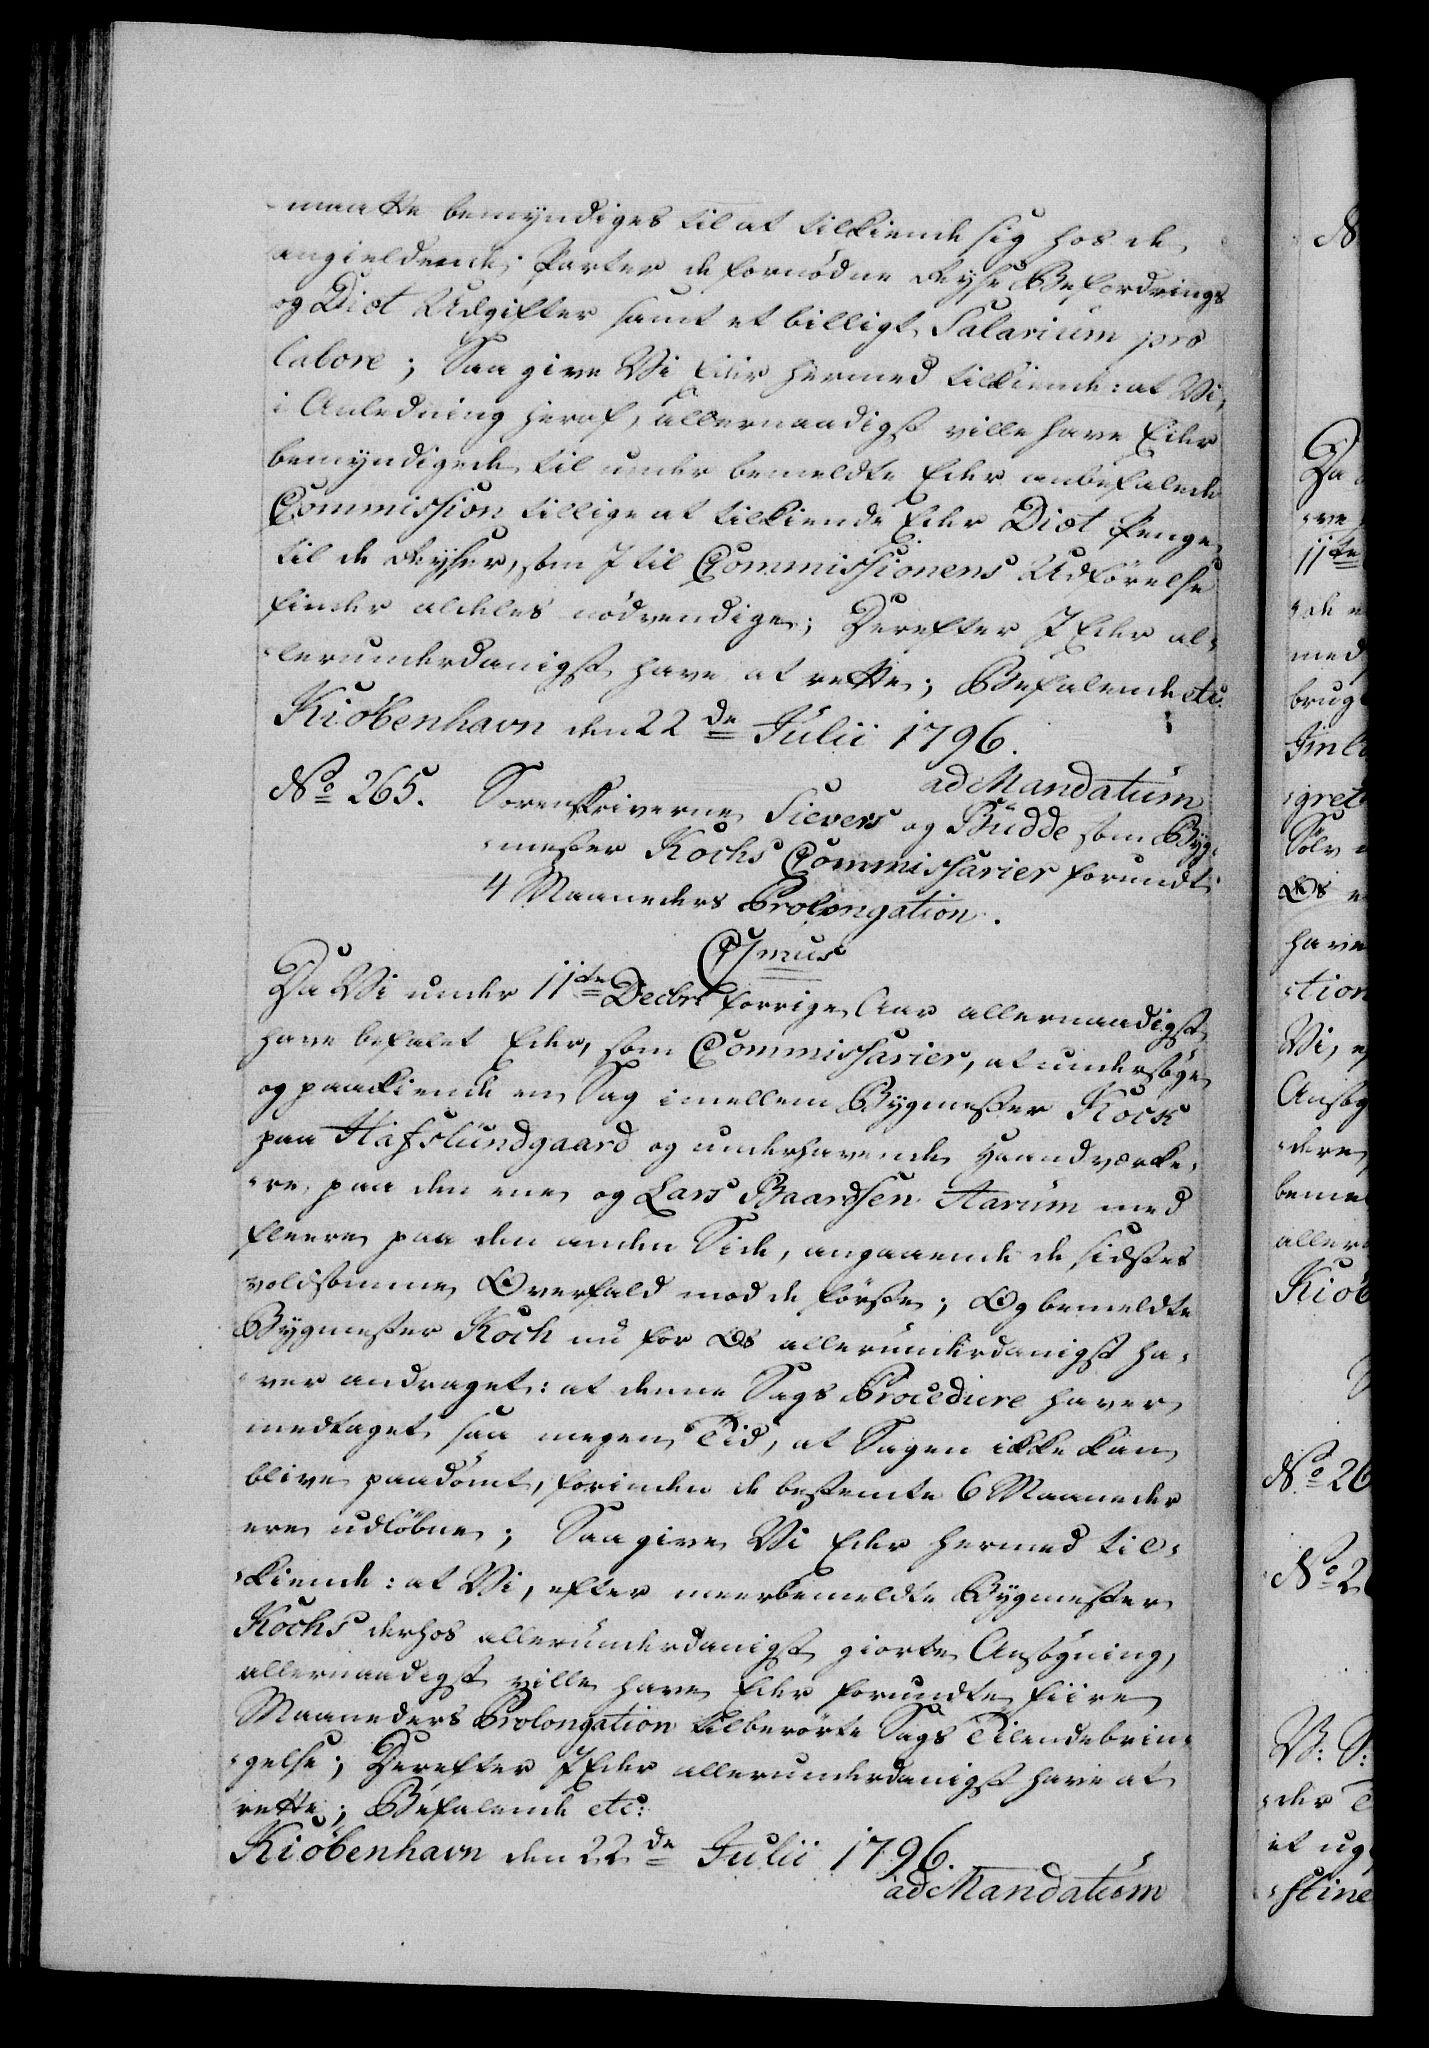 maatte bemyndiges til at tilkiende sig hos de
angieldende Parter de fornødne Reyse Befordrings
og Diæt Udgifter samt et billigt Salarium pro
labore; Saa give Vi Eder hermed tilkiende: at Vi,
i Anledning heraf, allernaadigst ville have Eder
bemyndigede til under bemeldte Eder anbefalede
Commission tillige at tilkiende Eder Diæt Penge
til de Reyser, som I til Commissionens Udførelse
finder aldeles nødvendige; Derefter I Eder al-
lerunderdanigst have at rette; Befalende etc:
Kiøbenhavn den 22de Julii 1796.
ad Mandatum
No 265. Sorenskriverne Sievers og Budde som Byg-
mester Kochs Commissarier forundt
4 Maaneders Prolongation.
C7mus
Da Vi under 11te Decbr forrige Aar allernaadigst
have befalet Eder, som Commissarier, at undersøge
og paakiende en Sag imellem Bygmester Kock
paa Hafslundgaard og underhavende Haandværke-
re paa den ene og Lars Baardsen Aarum med
fleere paa den anden Side, angaaende de sidstes
voldsomme Overfald mod de første; Og bemeldte
Bygmester Koch nu for Os allerunderdanigst ha-
ver andraget: at denne Sags Procedure haver
medtaget saa megen Tid, at Sagen ikke kan
blive paadømt, forinden de bestemte 6 Maaneder
ere udløbne; Saa give Vi Eder hermed til-
kiende: at Vi, efter meerbemeldte Bygmester
Kochs derhos allerunderdanigst giorte Ansøgning,
allernaadigst ville have Eder forundte fiire
Maaneders Prolongation til berørte Sags Tilendebrin-
gelse; Derefter I Eder allerunderdanigst have at
rette; Befalende etc:
Kiøbenhavn den 22de Julii 1796.
ad Mandatum